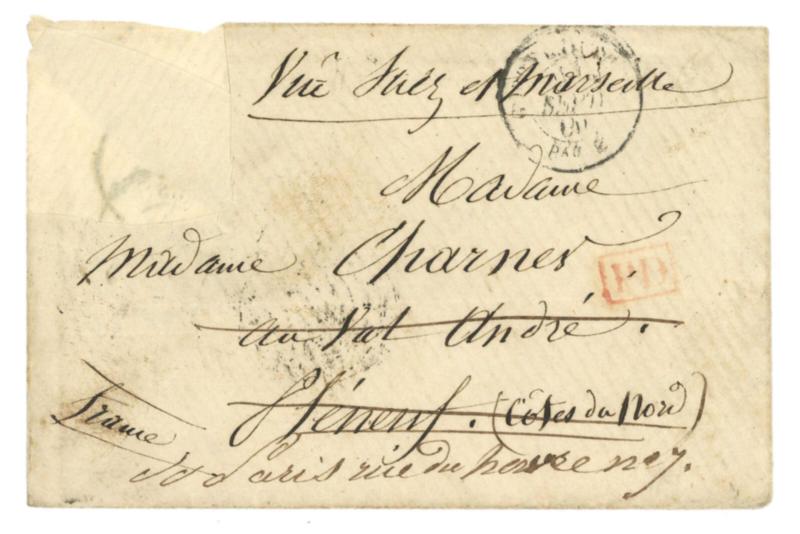 Via Suez et Marseille
Madame
Madame Charner
au Val André.
Pléneuf. (Côtes du Nord)
France
Paris rue du havre no 7.
PD